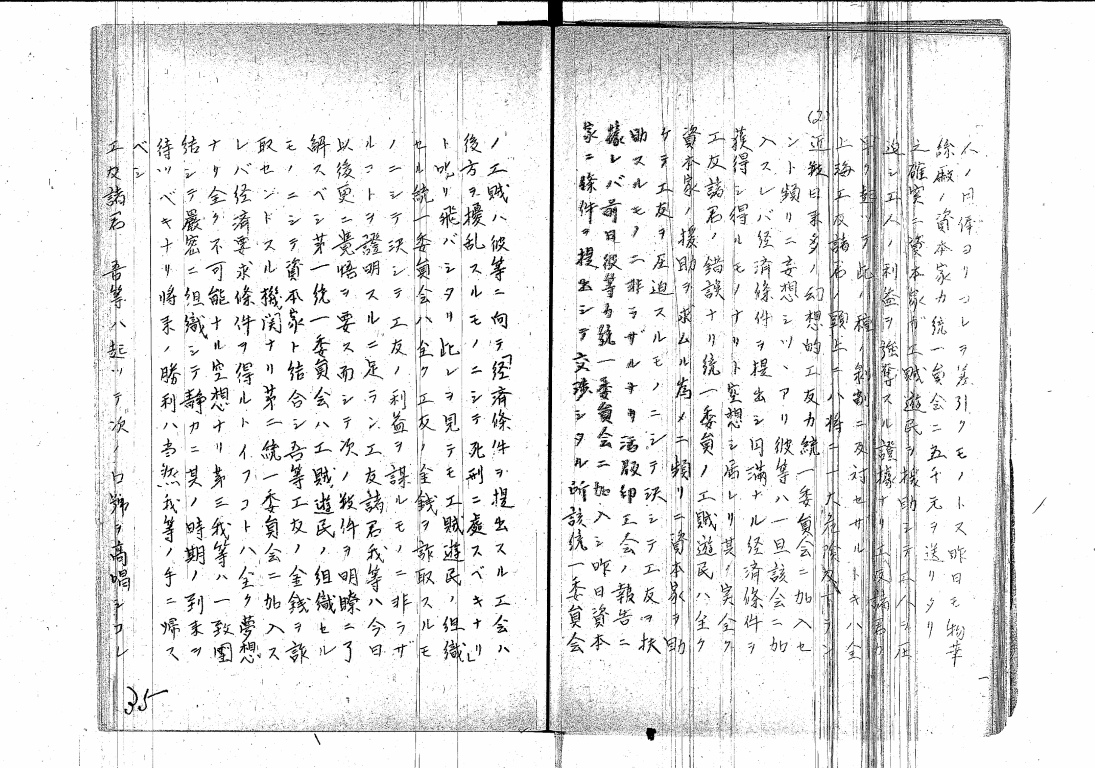 人ノ因偉ヨリコレヲ索引クモノトス昨日モ物華
絲廠ノ資本家カ統一員会ニ五千元ヲ送リタリ
之確実ニ資本家ガ工賊遊民ヲ援助シテ工人ヲ圧
迫シ工人ノ利益ヲ強奪スル證據ナリ工友諸君カ
起ツテ此ノ種ノ剝削ニ反対セサルトキハ全
上海工友諸君ノ頭上ニハ将ニ一大危険及ブラン
(2)
近数日来多ノ幻想的工友カ統一委員会ニ加入セ
ント頻リニ妄想シツヽアリ彼等ハ一旦該会ニ加
入スレバ経済條件ヲ提出シ円満ナル経済條件ヲ
獲得シ得ルモノナリト空想シ居レリ其ノ実全ク
工友諸君ノ錯誤ナリ統一委員ノ工賊遊民ハ全ク
資本家ノ援助ヲ求ムル為メニ頻リニ資本家ヲ助
ケテ工友ヲ圧迫スルモノニシテ決シテ工友ヲ扶
助スルモノニ非ラザルナリ 印工会ノ報告ニ
據レバ前日彼等カ統一委員会ニ加入シ昨日資本
家ニ條件ヲ提出シテ交渉シタル所該統一委員会
ノ工賊ハ彼等ニ向テ「経済條件ヲ提出スル工会ハ
後方ヲ擾乱スルモノニシテ死刑ニ處スベキナリ」
ト呪リ飛バシタリ此レヲ見テモ工賊遊民ノ組織
セル統一委員会ハ全ク工友ノ金銭ヲ詐取スルモ
ノニシテ決シテ工友ノ利益ヲ謀ルモノニ非ラザ
ルコトヲ證明スルニ足ラン工友諸君我等ハ今日
以後更ニ覚悟ヲ要ス而シテ次ノ数件ヲ明瞭ニ了
解スベシ第一統一委員会ハ工賊遊民ノ組織セル
モノニシテ資本家ト結合シ吾等工友ノ金銭ヲ詐
取センドスル機関ナリ第二統一委員会ニ加入ス
レバ経済要求條件ヲ得ルトイフコトハ全ク夢想
ナリ全ク不可能ナル空想ナリ第三我等ハ一致團
結シテ厳密ニ組織シテ静カニ其ノ時期ノ到来ヲ
待ツベキナリ将来ノ勝利ハ当然我等ノ手ニ帰ス
ベシ
工友諸君 吾等ハ起ツテ次ノ口號ヲ高唱シコレ
35